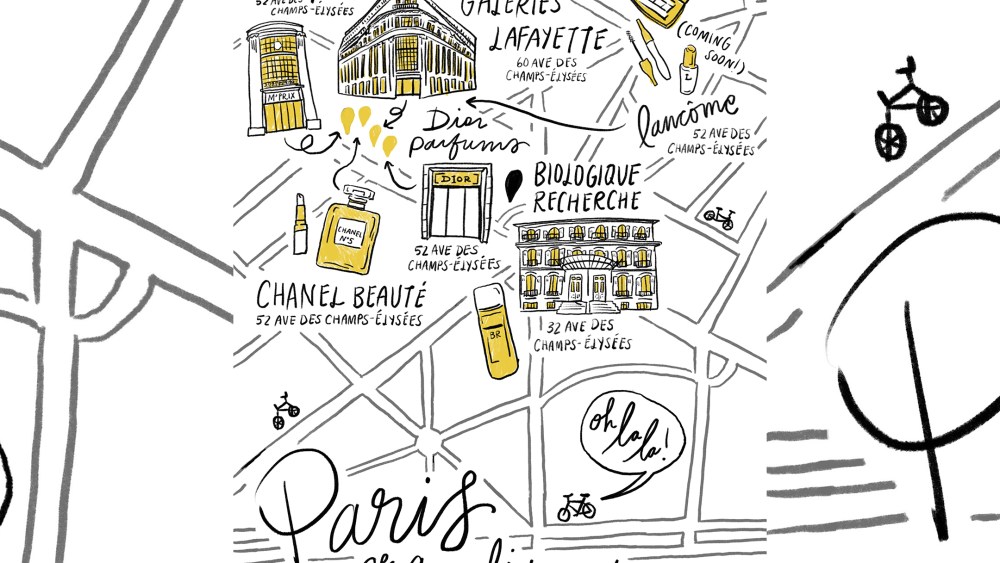 52 AVE DES
CHAMPS-ÉLYSÉES
GALERIES
LAFAYETTE
60 AVE DES
CHAMPS-ÉLYSÉES
(COMING
SOON!)
L
M*PRIX
Dior
parfums
lancôme
52 AVE DES
CHAMPS-ÉLYSÉES
DIOR
BIOLOGIQUE
RECHERCHE
CHANEL
N°5
52 AVE DES
CHAMPS-ÉLYSÉES
CHANEL BEAUTÉ
52 AVE DES CHAMPS-ÉLYSÉES
BR
32 AVE DES
CHAMPS-ÉLYSÉES
oh
la
la!
Paris